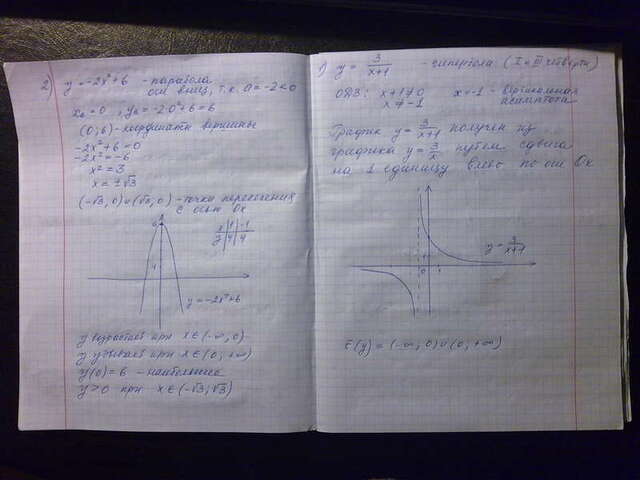 2) y = -2x²+6 - парабола
оси вниз, т.к. a = -2 < 0
x₀ = 0 , y₀ = -2·0²+6 = 6
(0; 6) - координаты вершины
-2x²+6 = 0
-2x² = -6
x² = 3
x = ±√3
(-√3, 0) и (√3, 0) - точки пересечения
с осью Ox
x | 1 | -1
y | 4 | 4
6
1
y = -2x²+6
y возрастает при x ∈ (-∞, 0)
y убывает при x ∈ (0; +∞)
y(0) = 6 - наибольшее
y > 0 при x ∈ (-√3; √3)
1) y = 3/(x+1) - гипербола (I и III четверти)
ОДЗ: x+1 ≠ 0 x = -1 - вертикальная
x ≠ -1 асимптота
График y = 3/(x+1) получен из
графика y = 3/x путём сдвига
на 1 единицу влево по оси Ox
y = 3/(x+1)
1
0 1
E(y) = (-∞; 0) ∪ (0; +∞)